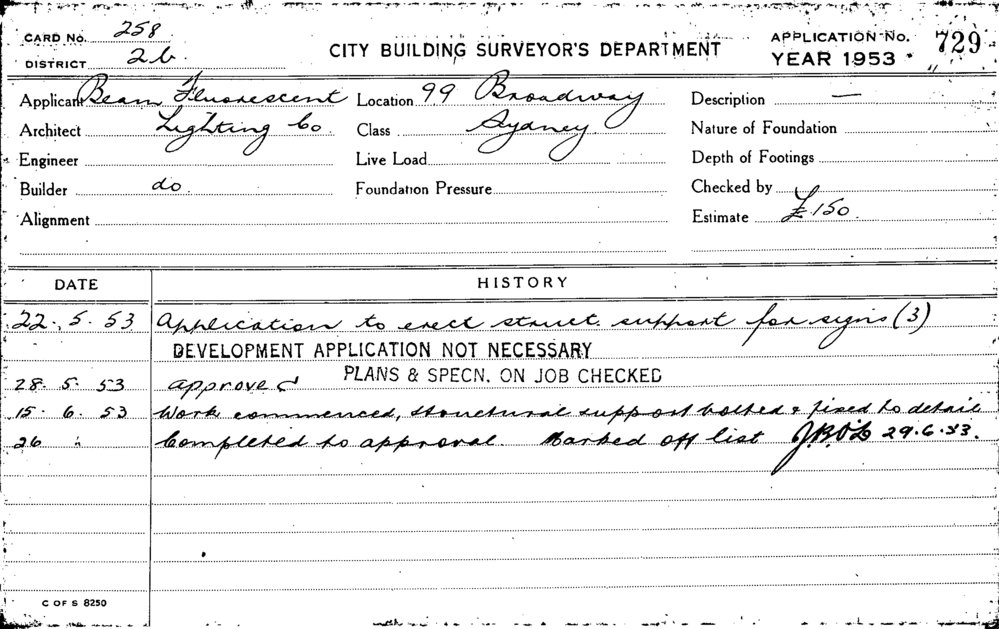 CARD No. 258
DISTRICT 2b.
CITY BUILDING SURVEYOR'S DEPARTMENT
APPLICATION No. 729
YEAR 1953
Applicant Beam Fluorescent Location 99 Broadway Description —
Architect Lighting Co. Class Sydney. Nature of Foundation
Engineer Live Load Depth of Footings
Builder do. Foundation Pressure Checked by
Alignment Estimate £150
DATE HISTORY
22. 5. 53 Application to erect struct. support for signs (3)
DEVELOPMENT APPLICATION NOT NECESSARY
28. 5. 53 approved PLANS & SPECN. ON JOB CHECKED
15. 6. 53 Work commenced, structural support bolted & fixed to detail
26 " Completed to approval. Marked off list 29.6.53.
C OF S 8250